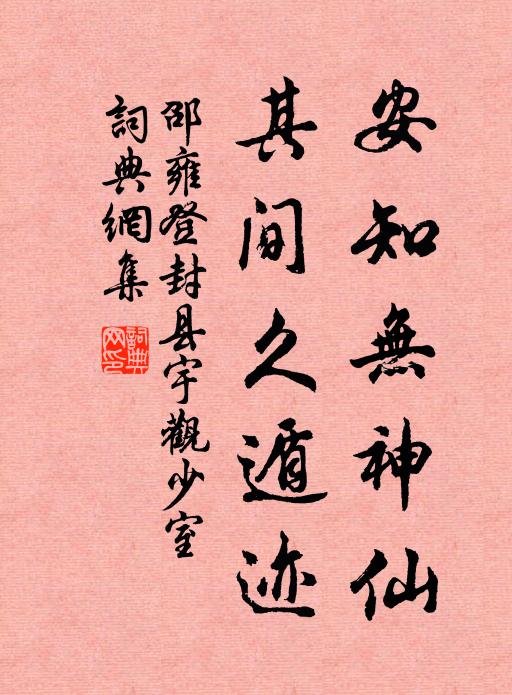 安知無神仙
其间久遁迹
邵雍登封县宇觀少室
詞典網集
詞典网印